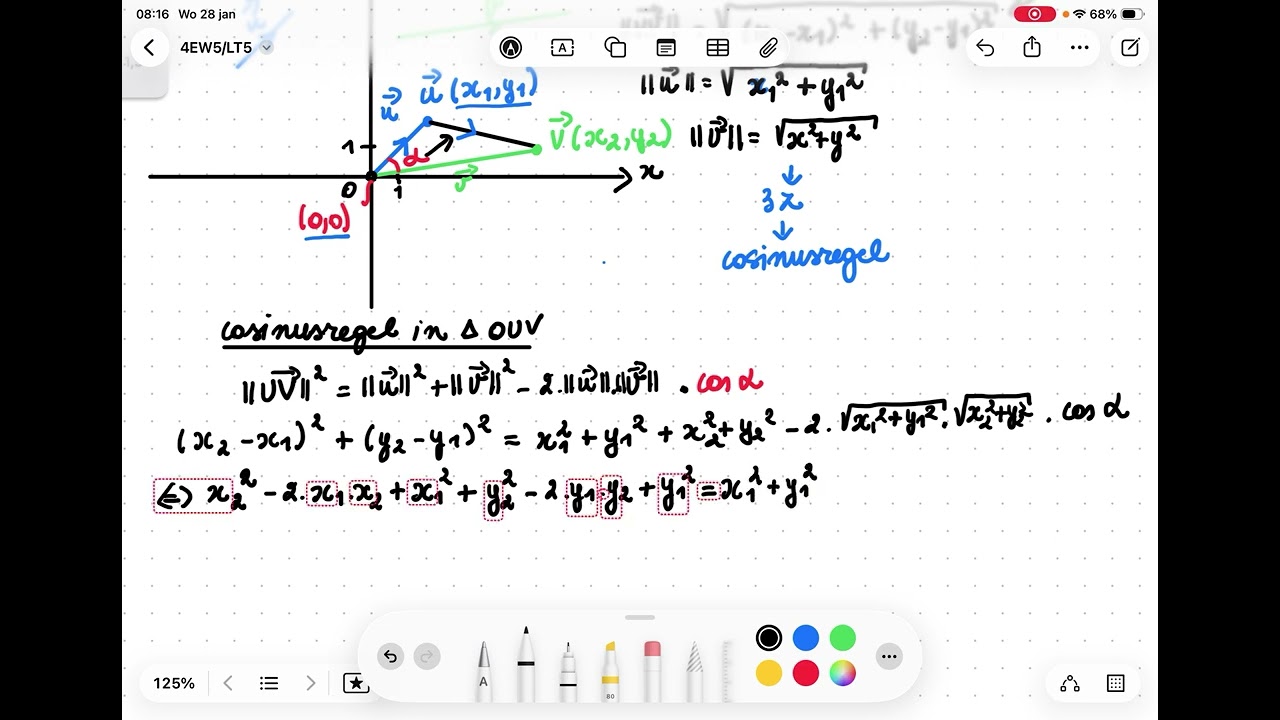 08:16 Wo 28 jan
68%
4EW5/LT5
||u⃗|| = √(x₁² + y₁²)
u⃗ u⃗ (x₁, y₁)
v⃗ (x₂, y₂)
||v⃗|| = √(x² + y²)
1
α
v⃗
x
0 1
(0,0)
3z
↓
cosinusregel
cosinusregel in Δ OUV
||UV⃗||² = ||u⃗||² + ||v⃗||² - 2.||u⃗||.||v⃗|| . cos α
(x₂ - x₁)² + (y₂ - y₁)² = x₁² + y₁² + x₂² + y₂² - 2 . √(x₁² + y₁²) . √(x₂² + y₂²) . cos α
⇔ x₂² - 2.x₁.x₂ + x₁² + y₂² - 2.y₁.y₂ + y₁² = x₁² + y₁²
A
80
125%